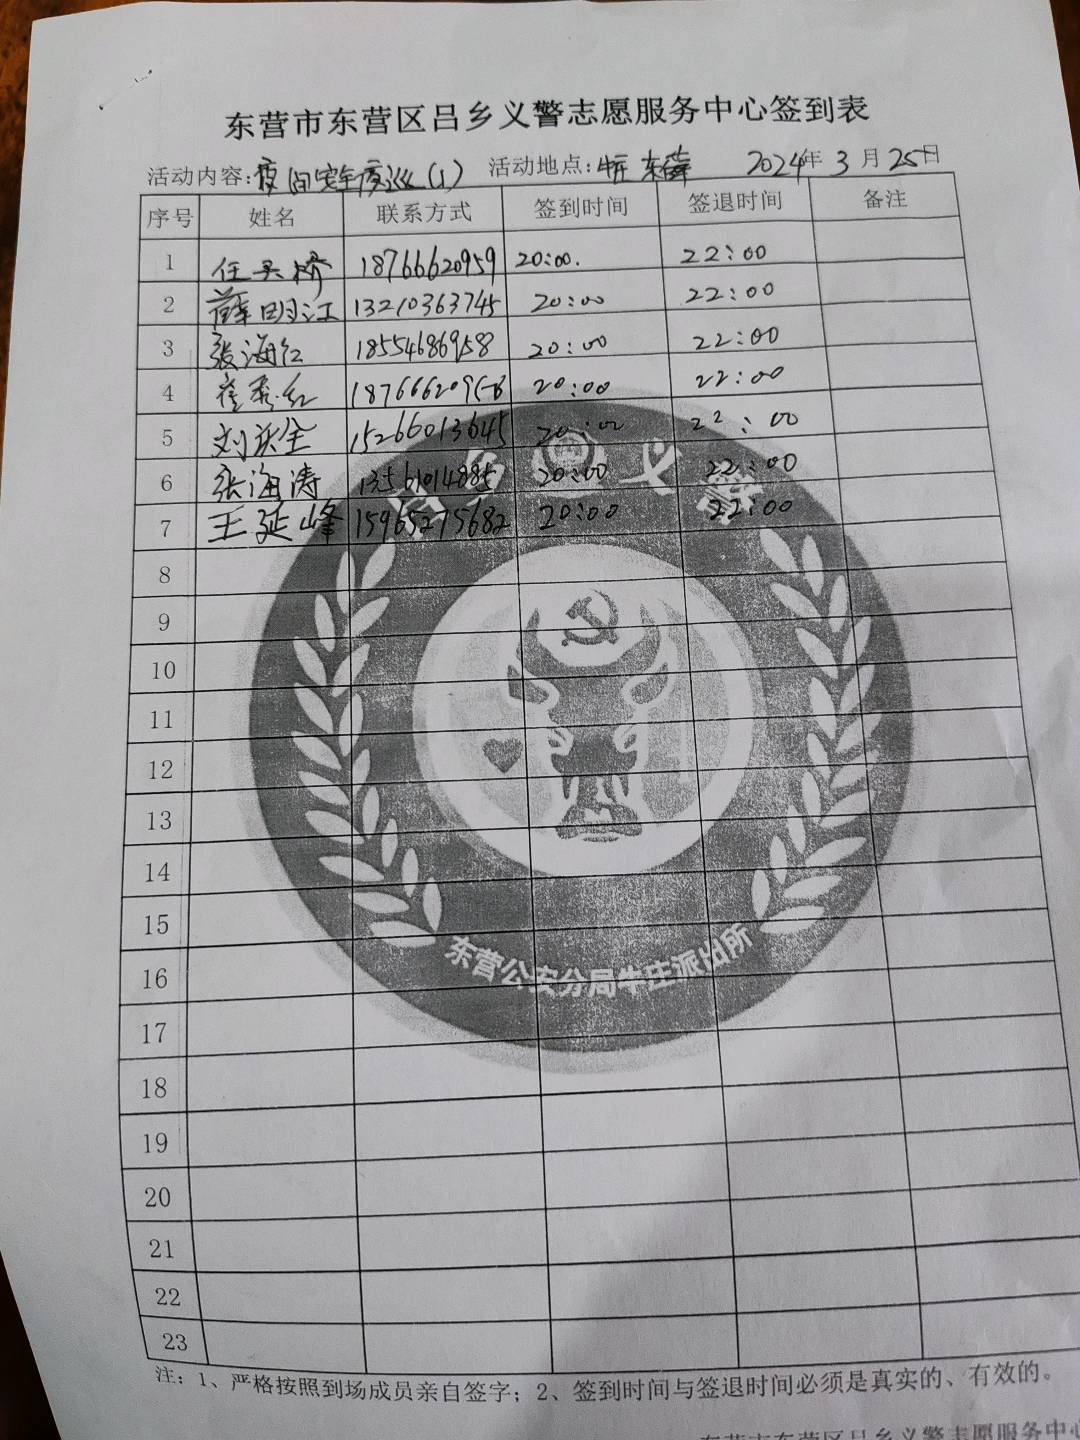 东营市东营区吕乡义警志愿服务中心签到表
活动内容:夜间安全夜巡(1) 活动地点: 东薛 2024年3月25日
序号 姓名 联系方式 签到时间 签退时间 备注
1 任 桥 18766620959 20:00. 22:00
2 薛明江 13210363745 20:00 22:00
3 张海红 18554686958 20:00 22:00
4 崔秀红 20:00 22:00
5 刘 全 15266013645 20:00 22:00
6 张海涛 13561014885 20:00 22:00
7 王延峰 15965275682 20:00 22:00
8
9
10
11
12
13
14
15
16
17
18
19
20
21
22
23
吕乡义警
东营公安分局牛庄派出所
注:1、严格按照到场成员亲自签字;2、签到时间与签退时间必须是真实的、有效的。
东营市东营区吕乡义警志愿服务中心